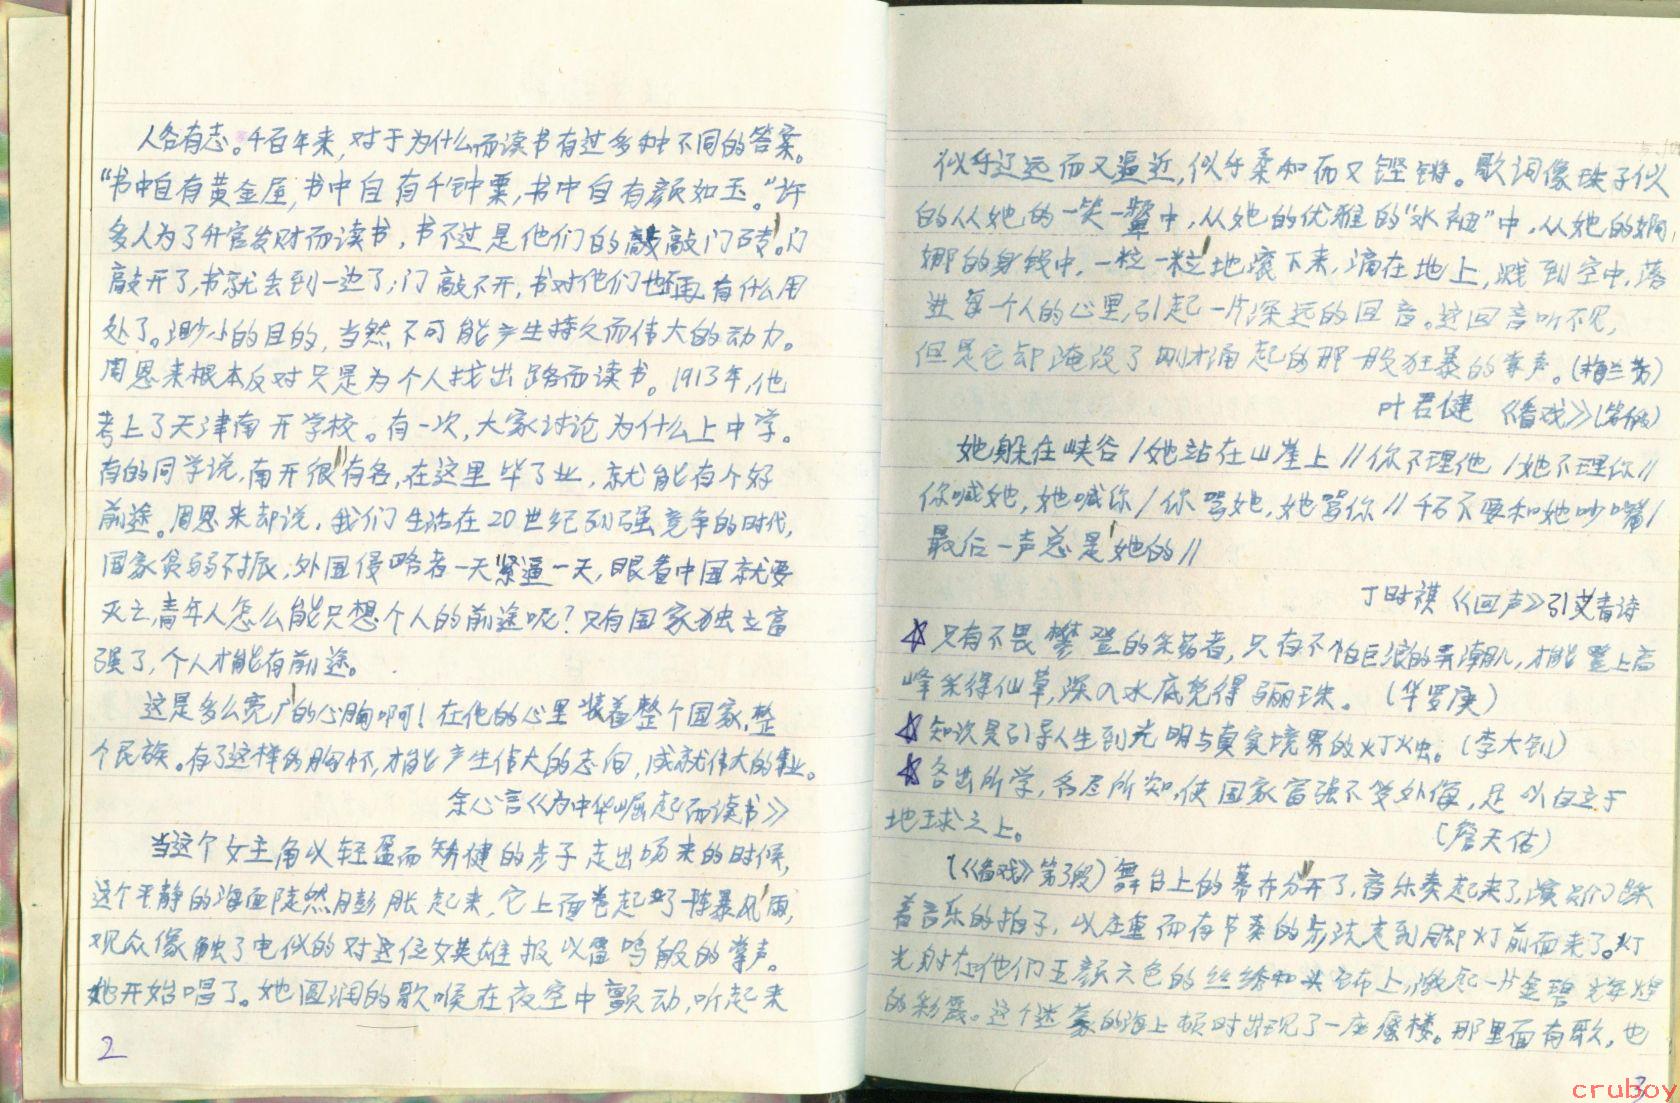 人各有志。千百年来,对于为什么而读书有过多种不同的答案。
“书中自有黄金屋,书中自有千钟粟,书中自有颜如玉。”许
多人为了升官发财而读书,书不过是他们的敲门砖。门
敲开了,书就丢到一边了;门敲不开,书对他们也再有什么用
处了。渺小的目的,当然不可能产生持久而伟大的动力。
周恩来根本反对只是为个人找出路而读书。1913年,他
考上了天津南开学校。有一次,大家讨论为什么上中学。
有的同学说,南开很有名,在这里毕了业,就能有个好
前途。周恩来却说,我们生活在20世纪列强竞争的时代,
国家贫弱不振,外国侵略者一天紧逼一天,眼看中国就要
灭亡,青年人怎么能只想个人的前途呢?只有国家独立富
强了,个人才能有前途。
这是多么宽广的心胸啊!在他的心里装着整个国家,整
个民族。有了这样的胸怀,才能产生伟大的志向,成就伟大的事业。
余心言《为中华崛起而读书》
当这个女主角以轻盈而矫健的步子走出场来的时候,
这个平静的海面陡然膨胀起来,它上面卷起了一阵暴风雨,
观众像触了电似的对这位女英雄报以雷鸣般的掌声。
她开始唱了。她圆润的歌喉在夜空中颤动,听起来
2
似乎辽远而又逼近,似乎柔和而又铿锵。歌词像珠子似
的从她的一笑一颦中,从她的优雅的“水袖”中,从她的婀
娜的身段中,一粒一粒地滚下来,滴在地上,溅到空中,落
进每一个人的心里,引起一片深远的回音。这回音听不见,
但是它却淹没了刚才涌起的那一股狂暴的掌声。(梅兰芳)
叶君健 《看戏》(第 段)
她躲在峡谷/她站在山崖上//你不理他/她不理你//
你喊她,她喊你/你骂她,她骂你//千万不要和她吵嘴/
最后一声总是她的//
丁时祺《回声》引艾青诗
☆只有不畏攀登的采药者,只有不怕巨浪的弄潮儿,才能登上高
峰采得仙草,深入水底觅得骊珠。 (华罗庚)
☆知识是引导人生到光明与真实境界的灯烛。(李大钊)
☆各出所学,各尽所知,使国家富强不受外侮,足以自立于
地球之上。 (詹天佑)
(《看戏》第3段)舞台上的幕布分开了,音乐奏起来了,演员们踩
着音乐的拍子,以庄重而有节奏的步法走到脚灯前面来了。灯
光射在他们五颜六色的丝绣和头饰上,激起一片金碧辉煌
的彩霞。这个迷蒙的海上顿时出现了一座蜃楼。那里面有歌,也
3
cruboy